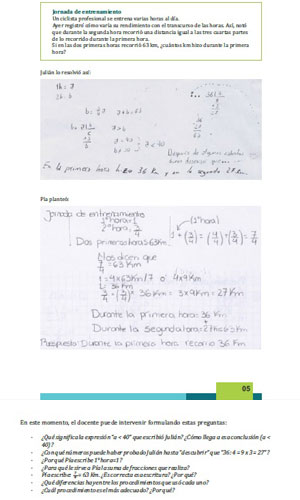 Jornada de entrenamiento
Un ciclista profesional se entrena varias horas al día.
Ayer registró cómo varía su rendimiento con el transcurso de las horas. Así, notó
que durante la segunda hora recorrió una distancia igual a las tres cuartas partes
de lo recorrido durante la primera hora.
Si en las dos primeras horas recorrió 63 km, ¿cuántos km hizo durante la primera
hora?
Julián lo resolvió así:
1h = a
2h = b
Después de algunos cálculos
En la primera hora hizo 36 K y en la segunda 27 K.
Pía planteó:
Jornada de entrenamiento
1ª hora: 1
2ª hora: 3/4
(1ª hora)
1 + (3/4) = (4/4) + (3/4) = 7/4
Dos primeras horas: 63 Km
Nos dicen que
7/4 = 63 Km
1 = 4x63Km/7 ó 4x9Km
1: 36 Km
36 Km = 3x9Km = 27 Km
Durante la primera hora: 36 Km
Durante la segunda hora: 27 Km
Respuesta: Durante la primera hora recorrió 36 Km
05
En este momento, el docente puede intervenir formulando estas preguntas:
- ¿Qué significa la expresión "a < 40" que escribió Julián? ¿Cómo llega a esa conclusión (a <
40)?
- ¿Con qué números puede haber probado Julián hasta "descubrir" que "36: 4 = 9 x 3 = 27"?
- ¿Por qué Pía escribe 1ª hora = 1?
- ¿Para qué le sirve a Pía la suma de fracciones que realiza?
- Pía escribe 7/4 = 63 Km. ¿Es correcta esa escritura? ¿Por qué?
- ¿Qué diferencias hay entre los procedimientos que usó cada uno?
- ¿Cuál procedimiento es el más adecuado? ¿Por qué?